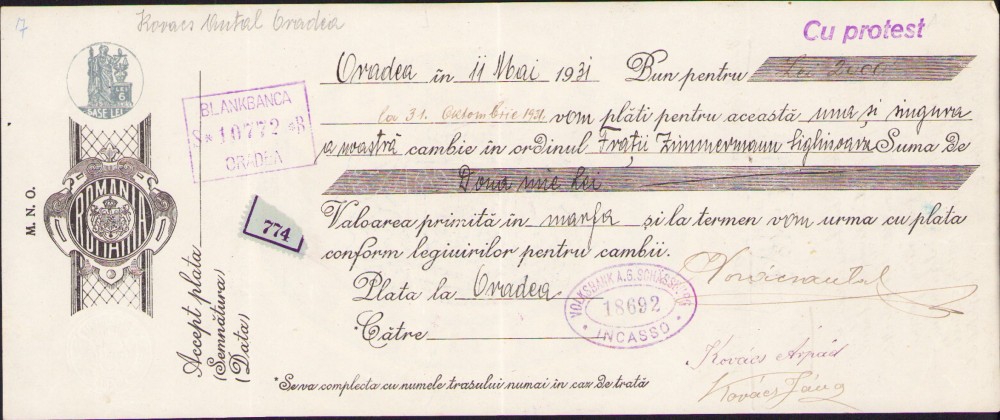 7 Kovacs Antal Oradea
Cu protest
LEI 6
SASE LEI
Oradea în 11 Mai 1931 Bun pentru Lei 2000
la 31. Oktombrie 1931. vom plăti pentru această una si singura
a noastră cambie în ordinul Frații Zimmermann Sighisoara Suma de
Doua mie Lei
Valoarea primită în marfa și la termen vom urma cu plata
conform legiuirilor pentru cambii.
Plata la Oradea
*Către
*Se va complecta cu numele trasului numai în caz de trată
BLANKBANCA
10772
ORADEA
774
VOLKSBANK A.G. SCHÄSSBURG
18692
INCASSO
Kovács Árpád
Kovács
M. N. O.
ROMANIA
Accept plata
(Semnătura)
(Data)